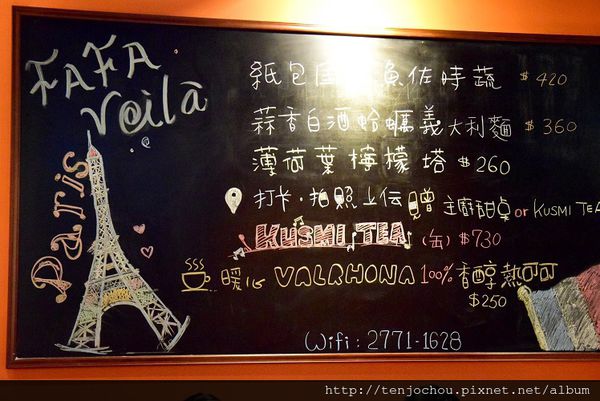 FAFA
Voilà
Paris
紙包 魚佐時蔬 $420
蒜香白酒蛤蠣義大利麵 $360
薄荷葉檸檬塔 $260
打卡·拍照上伝贈 主廚甜桌 or KUSMI TEA
KUSMI TEA (缶) $730
暖心 VALRHONA 100% 香醇熱可可
$250
Wifi: 2771-1628
http://tenjochou.pixnet.net/album